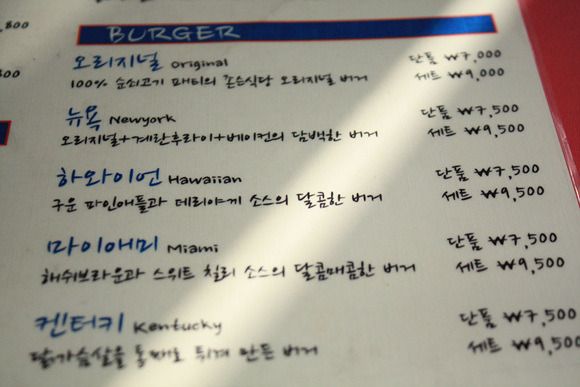 BURGER
오리지널 original 단품 ₩7,000
100% 순쇠고기 패티의 존슨식당 오리지널 버거 세트 ₩9,000
뉴욕 Newyork 단품 ₩7,500
오리지널+계란후라이+베이컨의 담백한 버거 세트 ₩9,500
하와이언 Hawaiian 단품 ₩7,500
구운 파인애플과 데리야끼 소스의 달콤한 버거 세트 ₩9,500
마이애미 Miami 단품 ₩7,500
해쉬브라운과 스위트 칠리 소스의 달콤매콤한 버거 세트 ₩9,500
켄터키 Kentucky 단품 ₩7,500
닭가슴살을 통째로 튀겨 만든 버거 세트 ₩9,500